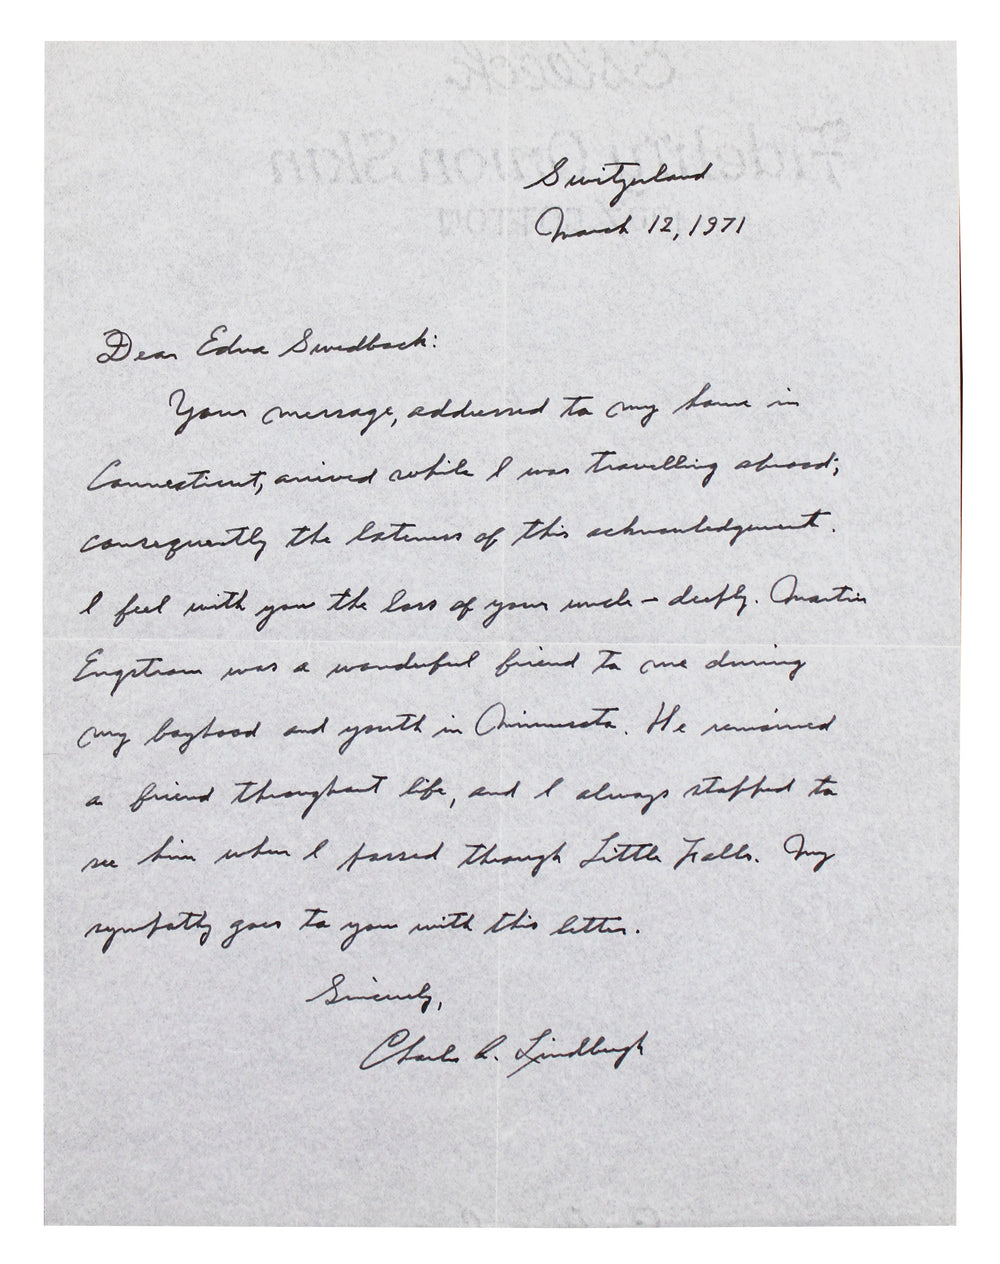 Switzerland
March 12, 1971
Dear Edna Swedback:
Your message, addressed to my home in
Connecticut, arrived while I was travelling abroad;
consequently the lateness of this acknowledgement.
I feel with you the loss of your uncle – deeply. Martin
Engstrom was a wonderful friend to me during
my boyhood and youth in Minnesota. He remained
a friend throughout life, and I always stopped to
see him when I passed through Little Falls. My
sympathy goes to you with this letter.
Sincerely,
Charles A. Lindbergh
Fidelity Onion Skin